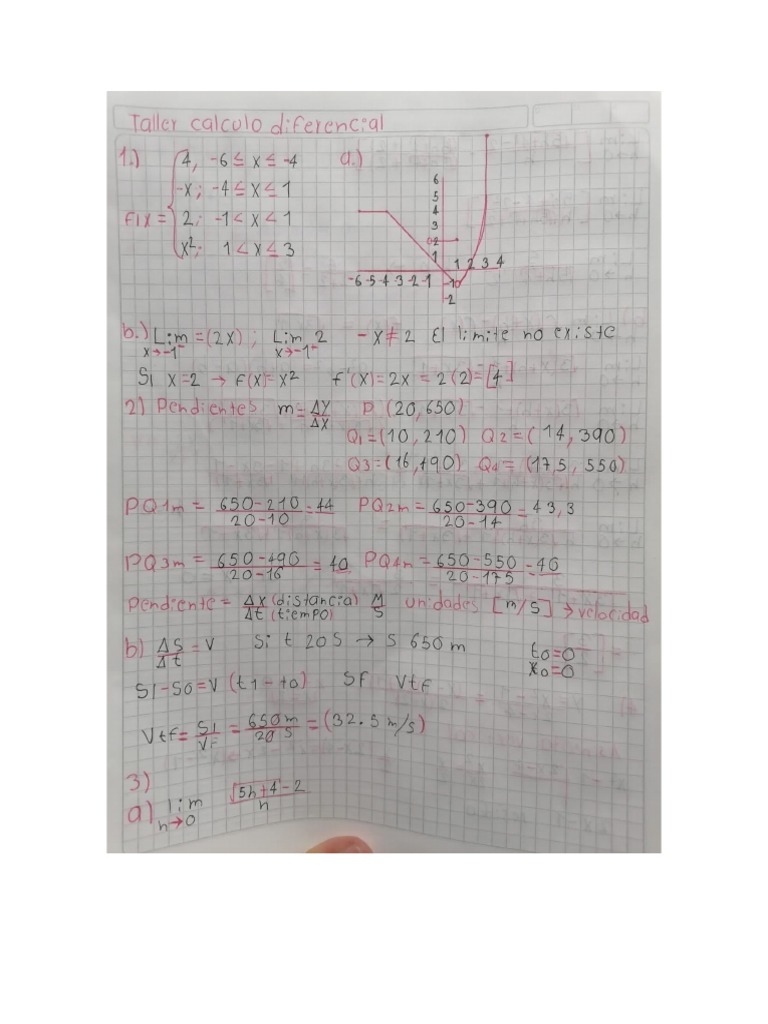 Taller calculo diferencial
1.) f(x = { 4, -6 ≤ x ≤ -4 a.)
-x; -4 ≤ x ≤ 1
2; -1 < x < 1
x²; 1 < x ≤ 3
6
5
4
3
2
1 1 2 3 4
-6 -5 -4 -3 -2 -1 -1
-2
b.) Lim = (2x) ; Lim 2 -x ≠ 2 El limite no existe
x→-1⁻ x→-1⁻
Si x = 2 → f(x) = x² f'(x) = 2x = 2(2) = [4]
2) Pendientes m = ΔY/ΔX P (20,650)
Q1 = (10, 210) Q2 = (14, 390)
Q3 = (16, 490) Q4 = (175, 550)
PQ1m = 650-210/20-10 = 44 PQ2m = 650-390/20-14 = 43,3
PQ3m = 650-490/20-16 = 40 PQ4m = 650-550/20-175 = 40
Pendiente = Δx (distancia)/Δt (tiempo) M/S unidades [m/s] → velocidad
b) ΔS/Δt = V Si t 20S → S 650 m to = 0
xo = 0
S1-S0 = V (t1-t0) SF Vtf
Vtf = S1/VF = 650m/20 s = (32.5 m/s)
3)
a) lim √5h+4 - 2/h
h→0